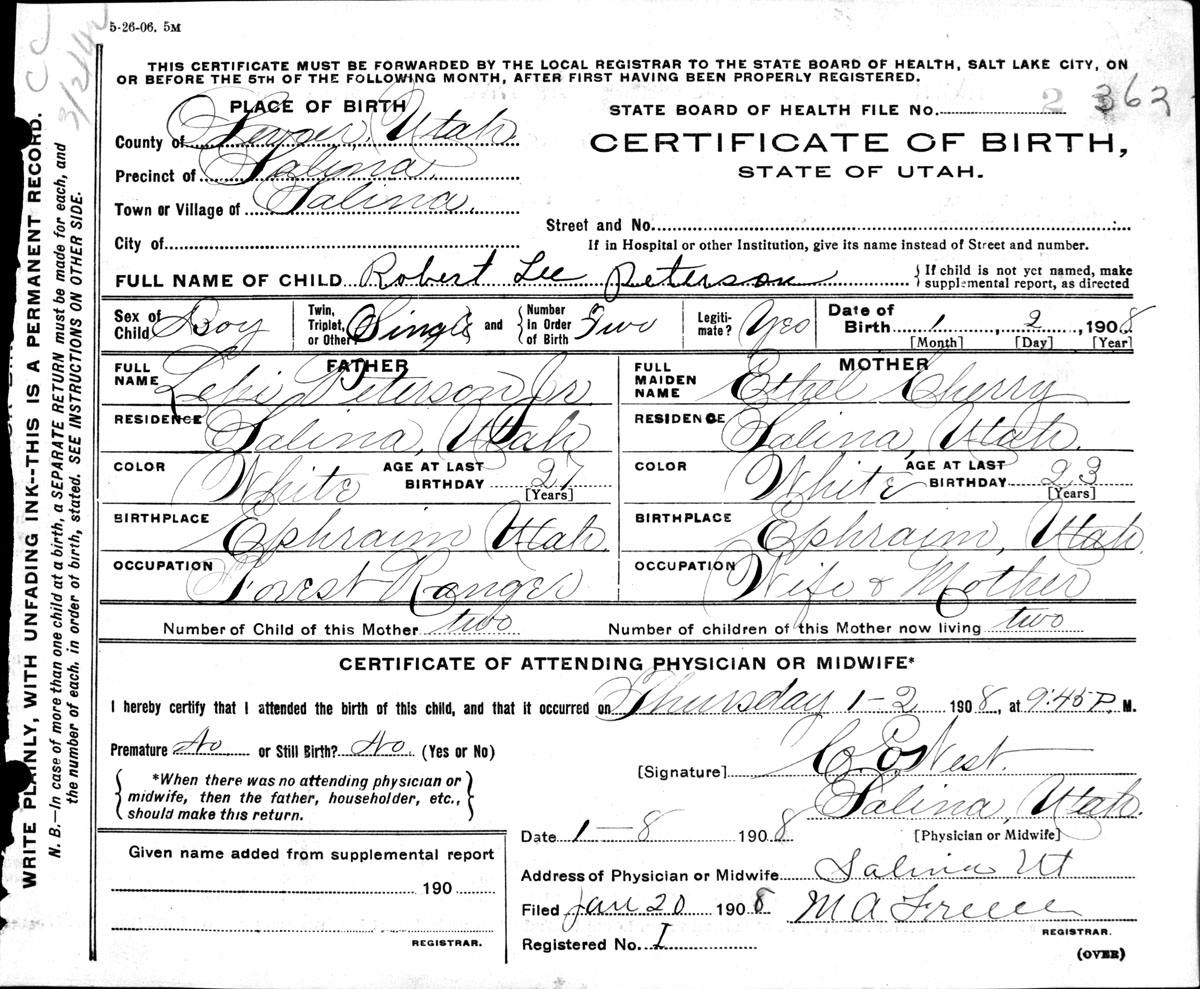 5-26-06. 5M
CC
3/2/42
THIS CERTIFICATE MUST BE FORWARDED BY THE LOCAL REGISTRAR TO THE STATE BOARD OF HEALTH, SALT LAKE CITY, ON
OR BEFORE THE 5TH OF THE FOLLOWING MONTH, AFTER FIRST HAVING BEEN PROPERLY REGISTERED.
WRITE PLAINLY, WITH UNFADING INK--THIS IS A PERMANENT RECORD.
N. B.—In case of more than one child at a birth, a SEPARATE RETURN must be made for each, and
the number of each, in order of birth, stated. SEE INSTRUCTIONS ON OTHER SIDE.
PLACE OF BIRTH
County of Sevier, Utah
Precinct of Salina
Town or Village of Salina
City of
STATE BOARD OF HEALTH FILE No. 2 363
CERTIFICATE OF BIRTH,
STATE OF UTAH.
Street and No.
If in Hospital or other Institution, give its name instead of Street and number.
FULL NAME OF CHILD Robert Lee Peterson { If child is not yet named, make
supplemental report, as directed
Sex of Child Boy Twin, Triplet, or Other Single and { Number in Order of Birth Two Legiti- mate? Yes Date of Birth 1, 2, 1908
[Month] [Day] [Year]
FATHER
FULL NAME Lehi Peterson Jr
RESIDENCE Salina, Utah
COLOR White AGE AT LAST BIRTHDAY 27
[Years]
BIRTHPLACE Ephraim Utah
OCCUPATION Forest Ranger
MOTHER
FULL MAIDEN NAME Ethel Cherry
RESIDENCE Salina, Utah.
COLOR White AGE AT LAST BIRTHDAY 23
[Years]
BIRTHPLACE Ephraim, Utah
OCCUPATION Wife & Mother
Number of Child of this Mother two Number of children of this Mother now living two
CERTIFICATE OF ATTENDING PHYSICIAN OR MIDWIFE*
I hereby certify that I attended the birth of this child, and that it occurred on Thursday 1-2 1908, at 9:45 P. M.
Premature No or Still Birth? No (Yes or No)
*When there was no attending physician or
midwife, then the father, householder, etc.,
should make this return.
[Signature] C. E. West.
Salina, Utah.
Date 1-8 1908 [Physician or Midwife]
Given name added from supplemental report
190
REGISTRAR.
Address of Physician or Midwife Salina Ut
Filed Jan 20 1908 M A
REGISTRAR.
Registered No. 1
(OVER)